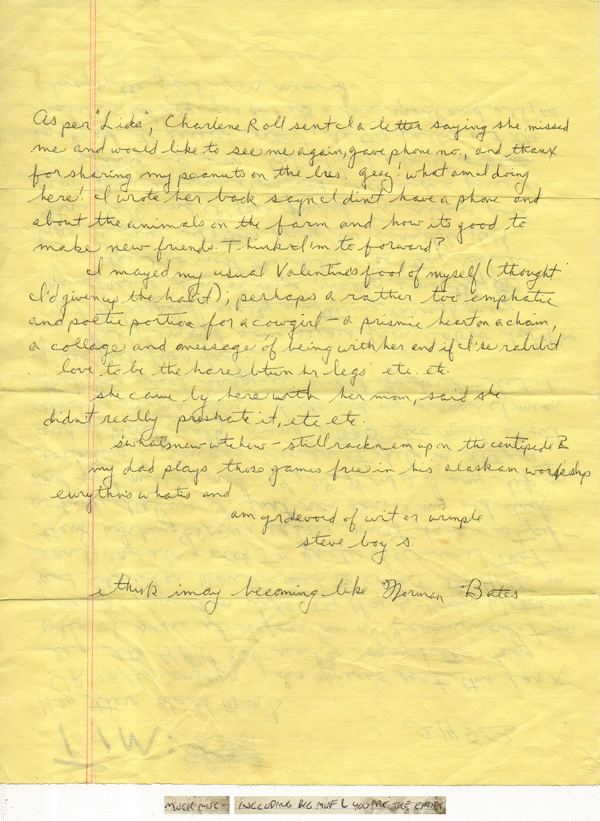 As per "Lida", Charlene Roll sent I a letter saying she missed
me and would like to see me again, gave phone no., and thanx
for sharing my peanuts on the bus. geez! what am I doing
here! I wrote her back sayn I din't have a phone and
about the animals on the farm and how its good to
make new friends. Think I'm to forward?
I mayed my usual Valentines fool of myself (thought
I'd given up the habit); perhaps a rather too emphatic
and poetic portion for a cowgirl - a prismic heart on a chain,
a collage and a message of being with her and if I'se rabbit
... love to be the hare btwn hr legs etc. etc.
she came by here with her mom, said she
didn't really preshate it, etc etc.
s'what'snew wtchew - still rackn em up on the centipede?
my dad plays those games free in his alaskan workship
eurythris whatis and
am yr devoid of wit or wimple
steve boy s.
i think i may becoming like Norman Bates
TIM:
MUCK MUC
INCLUDING BIG MUF & YOU ARE THE